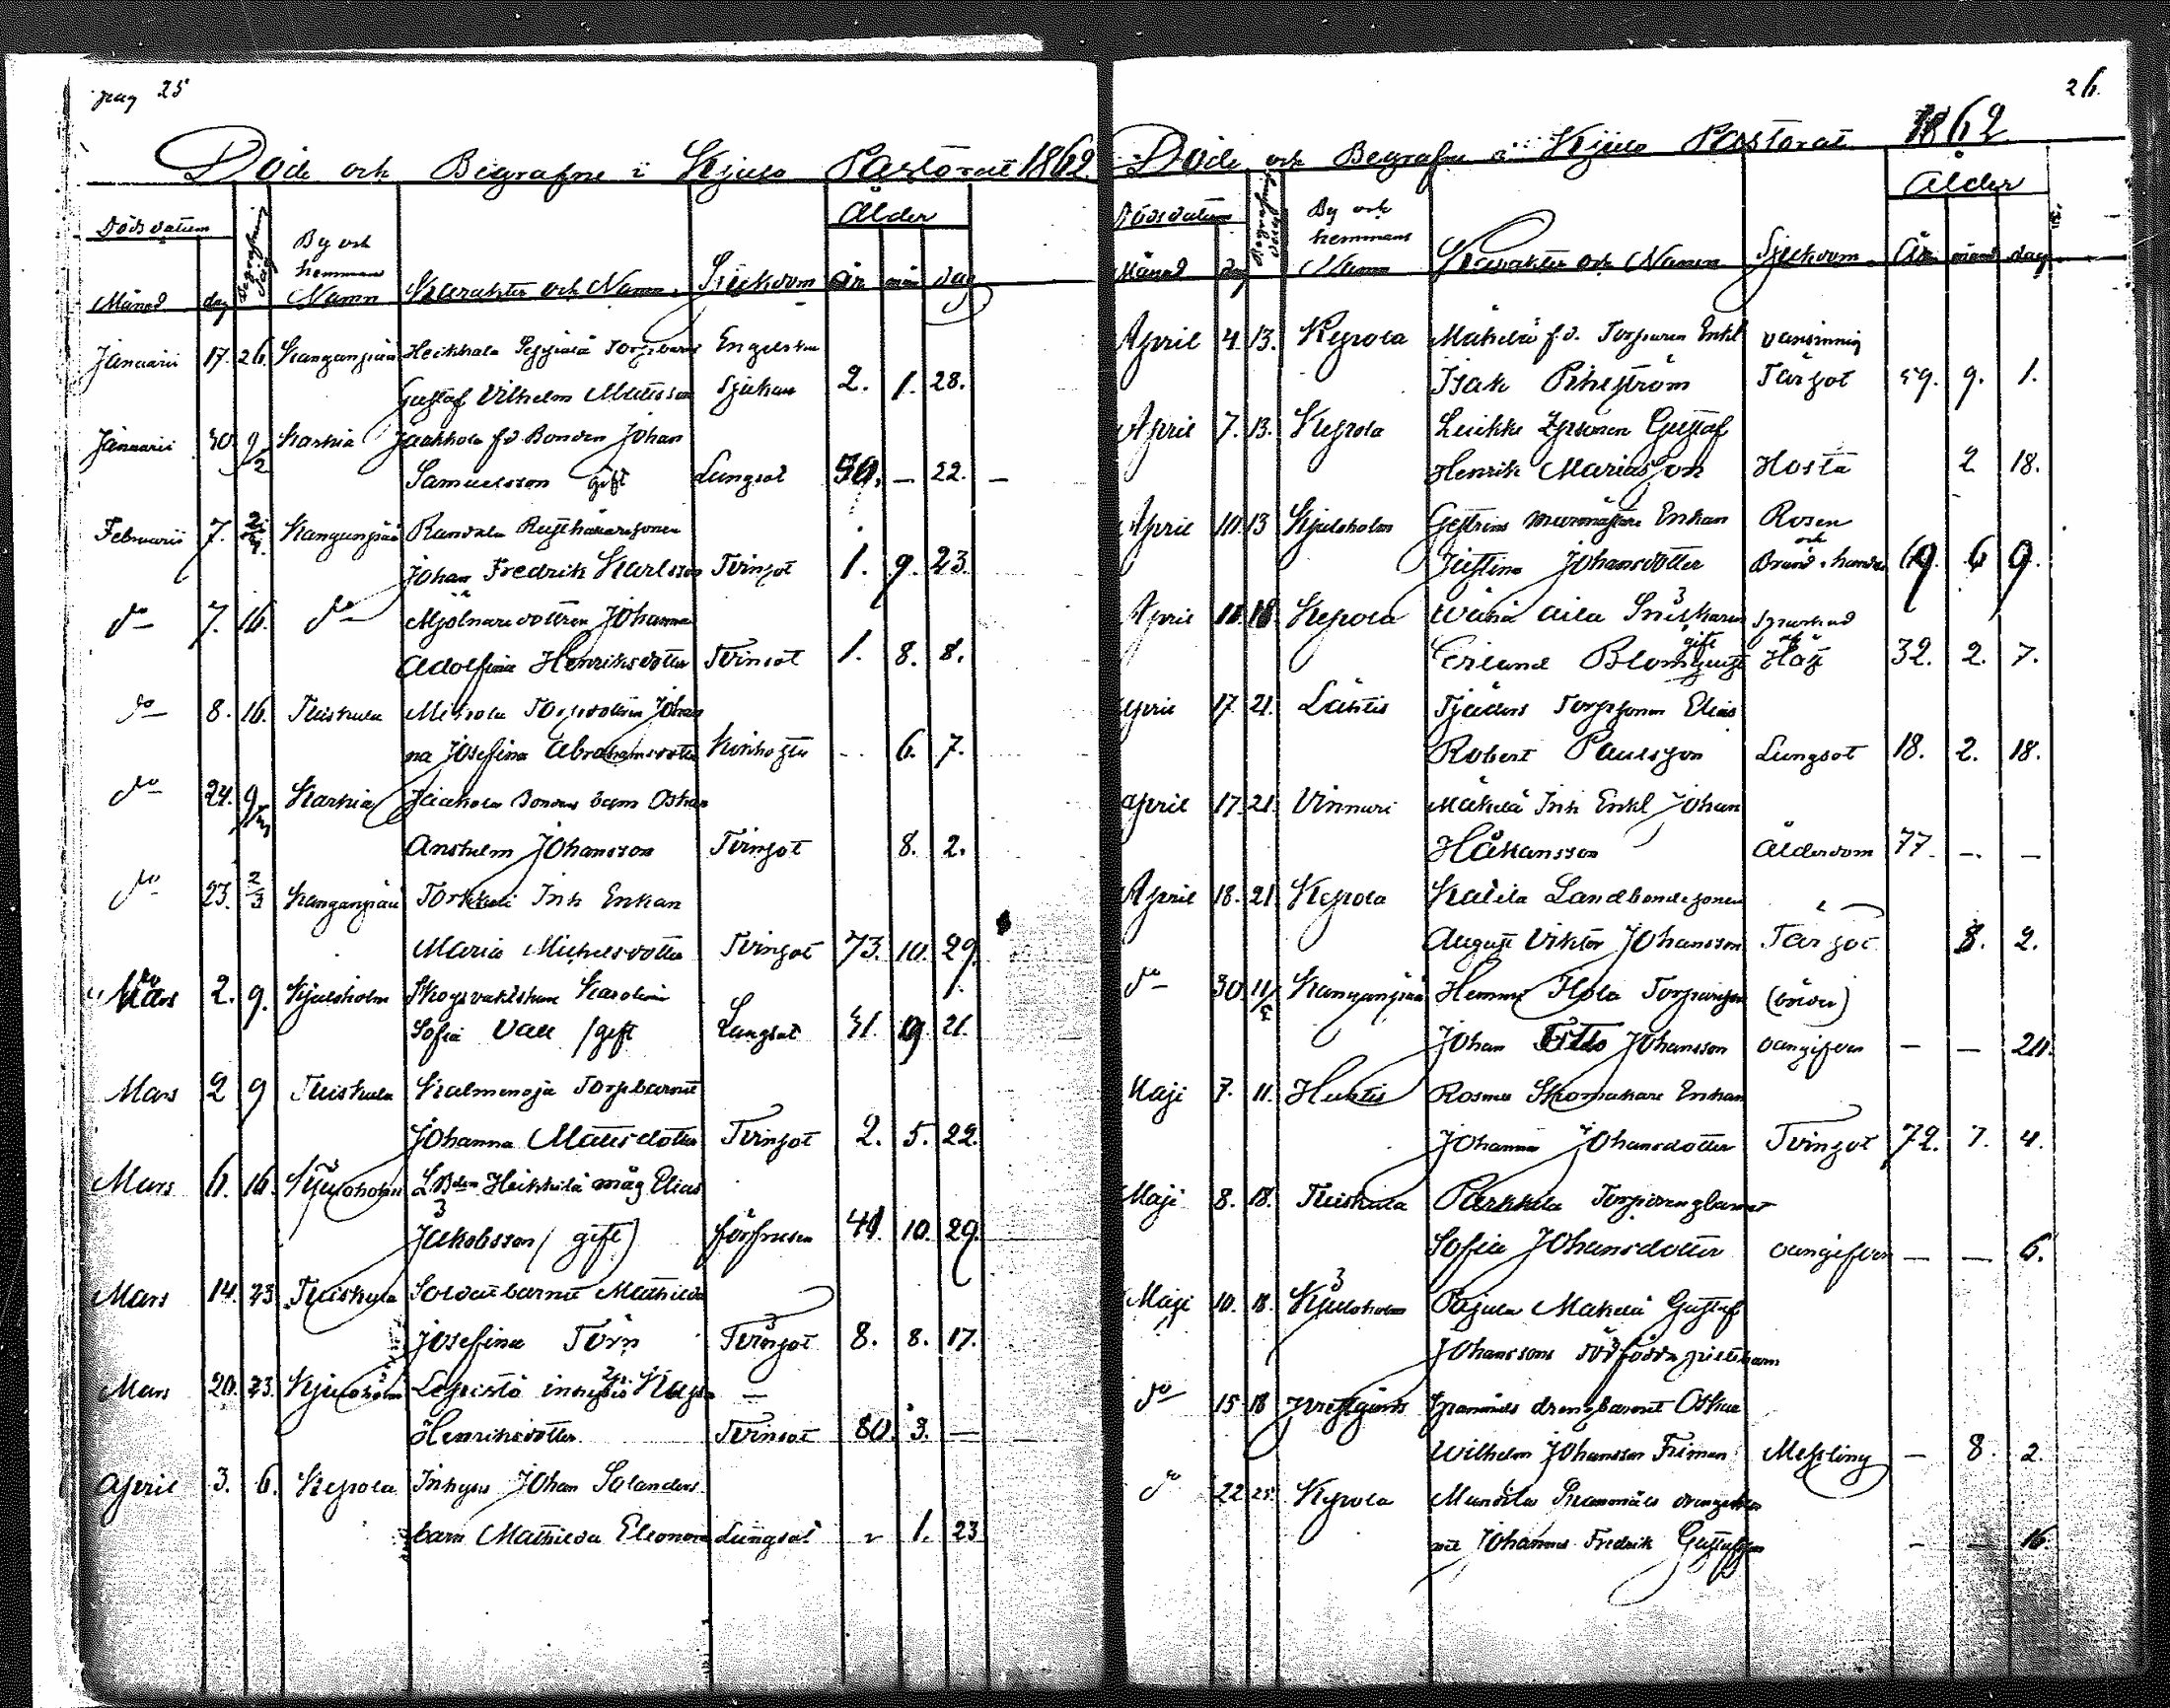 pag 25
Döde och Begrafne i Kjulo Pastorat 1862
Dödsdatum Begrafnings dag By och hemmans Namn Karakter och Namn. Sjukdom Ålder
Månad dag år mån dag
Januarii 17. 26. Kanganpää Heikkala Torpbarn Engelska
Gustaf Vilhelm Mattsson Sjukan 2. 1. 28.
Januarii 30. 9/2 Karhia Jaakkola f.d. Bonden Johan
Samuelsson gift Lungsot 50. — 22. —
Februarii 7. Kanganpää Randala Rusthållaresonen
Johan Fredrik Karlsson Tvinsot 1. 9. 23.
do 7. 16. do Mjölnaredottren Johanna
Adolfina Henriksdotter Tvinsot 1. 8. 8.
do 8. 16. Tuiskula Johan
na Josefina Abrahamsdotter Kikhosta - 6. 7.
do 24. 9/3 Karhia Jaakola Bondens barn Oskar
Anshelm Johansson Tvinsot 8. 2.
do 23. 2/3 Kanganpää Torkkeli Inh Enkan
Maria Michelsdotter Tvinsot 73. 10. 29.
Mars 2. 9. Kjuloholm Skogsvaktskan Karolina
Sofia Vall /gift Lungsot 31. 9. 21.
Mars 2 9 Tuiskula Kalmenoja Torpbarnet
Johanna Mattsdotter Tvinsot 2. 5. 22.
Mars 6. 16. Kjuloholm L.Bden Heikkilä måg Elias
Jakobsson / gift) förfrusen 41. 10. 29.
Mars 14. 23. Tuiskula Soldatbarnet Mathilda
Josefina Törn Tvinsot 8. 8. 17.
Mars 20. 23. Kjuloholm Lepistö Kaisa —
Henriksdotter Tvinsot 80. 3. —
April 3. 6. Kepola Inhyses Johan Salanders
barn Mathilda Eleonora Lungsot 1. 23
26.
Döde och Begrafne i Kjulo Pastorat 1862
Dödsdatum Begrafnings dag By och hemmans Namn Karakter och Namn Sjukdom Ålder
Månad dag År månd dag
April 4. 13. Kepola Mäkelä f.d. Torparen Enkl vansinnig
Isak Rikström Tärsot 59. 9. 1.
April 7. 13. Kepola Leikku Gustaf
Henrik Mariasson Hosta 2 18.
April 10. 13 Kjuloholm Gestrins murmästare Enkan Rosen
Justina Johansdotter och Brand 69. 6 9.
April 11. 18. Kepola Snickaren
Erland Blomquist gift 32. 2. 7.
April 17. 21. Lähtis Tjäders Torpsonen Elias
Robert Paulsson Lungsot 18. 2. 18.
April 17. 21. Vinnari Mäkilä Inh Enkl Johan
Håkansson Ålderdom 77. — —
April 18. 21. Kepola Kaitila Landbondesonen
August Viktor Johansson Tärsot 8. 2.
do 30 11/5 Kanganpää Hemmi Torpare
Johan Otto Johansson oangifven — — 20.
Maji 7. 11. Huhtis Skomakare Enkan
Johanna Johansdotter Tvinsot 72. 7. 4.
Maji 8. 18. Tuiskula Perkkila Torpdrengbarnet
Sofia Johansdotter oangifven — — 6.
Maji 10. 18. Kjuloholm Pajula Mäkilä Gustaf
Johanssons dödfödda
do 15 18 drengbarnet Oskar
Wilhelm Johansson Friman Messling — 8. 2.
do 22 25. Kepola
Johannes Fredrik Gustafsson - — 16.